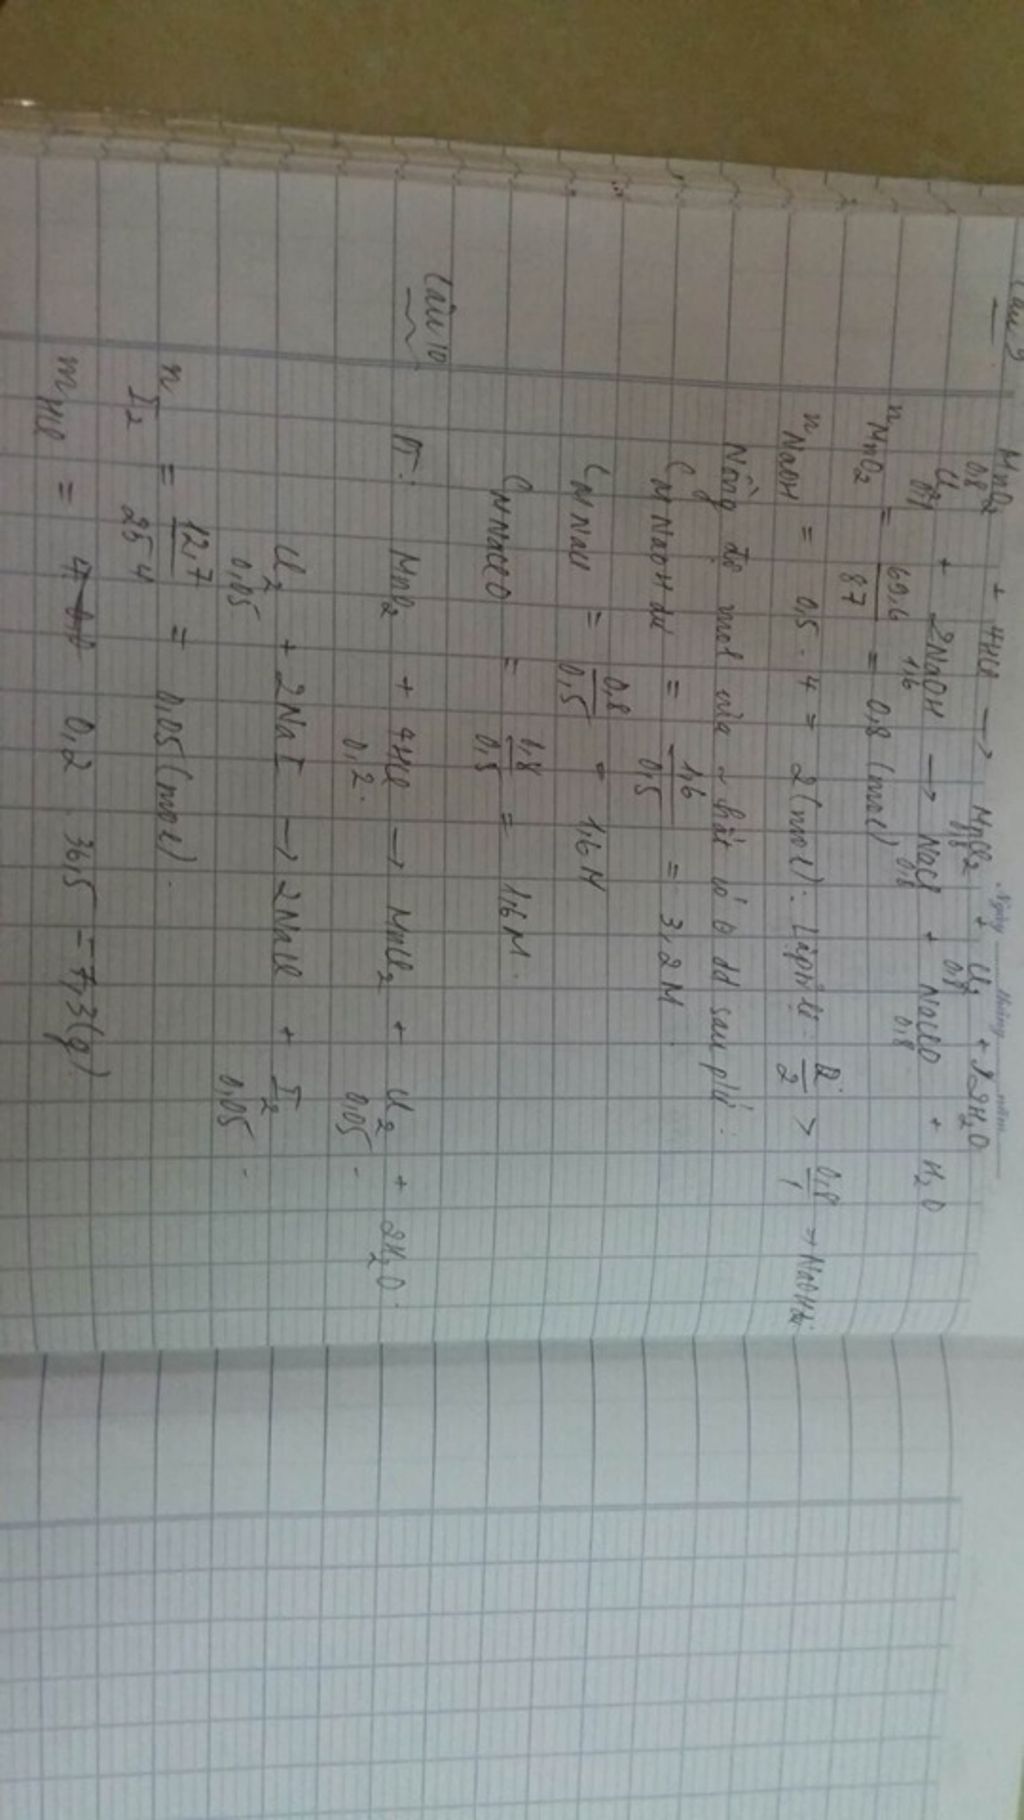 Ngày tháng năm
Câu 9
MnO2 + 4HCl → MnCl2 + Cl2 + 2H2O
0,8 0,8
Cl2 + 2NaOH → NaCl + NaClO + H2O
1,6 0,8 0,8
nMnO2 = 69,6/87 = 0,8 (mol)
nNaOH = 0,5 . 4 = 2 (mol). Lập tỉ lệ: 2/2 > 0,8/1 → NaOH dư
Nồng độ mol của ~ chất có ở dd sau pứ.
CM NaOH dư = 1,6/0,5 = 3,2M.
CM NaCl = 0,8/0,5 = 1,6M
CM NaClO = 0,8/0,5 = 1,6M.
Câu 10
Pt: MnO2 + 4HCl → MnCl2 + Cl2 + 2H2O.
0,2. 0,05.
Cl2 + 2NaI → 2NaCl + I2
0,05 0,05.
nI2 = 12,7/254 = 0,05 (mol).
mHCl = 0,2 . 36,5 = 7,3 (g)